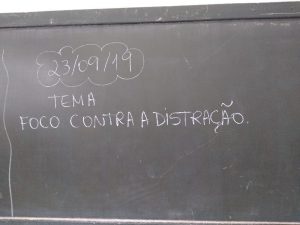 23/09/19
TEMA
FOCO CONTRA A DISTRAÇÃO.